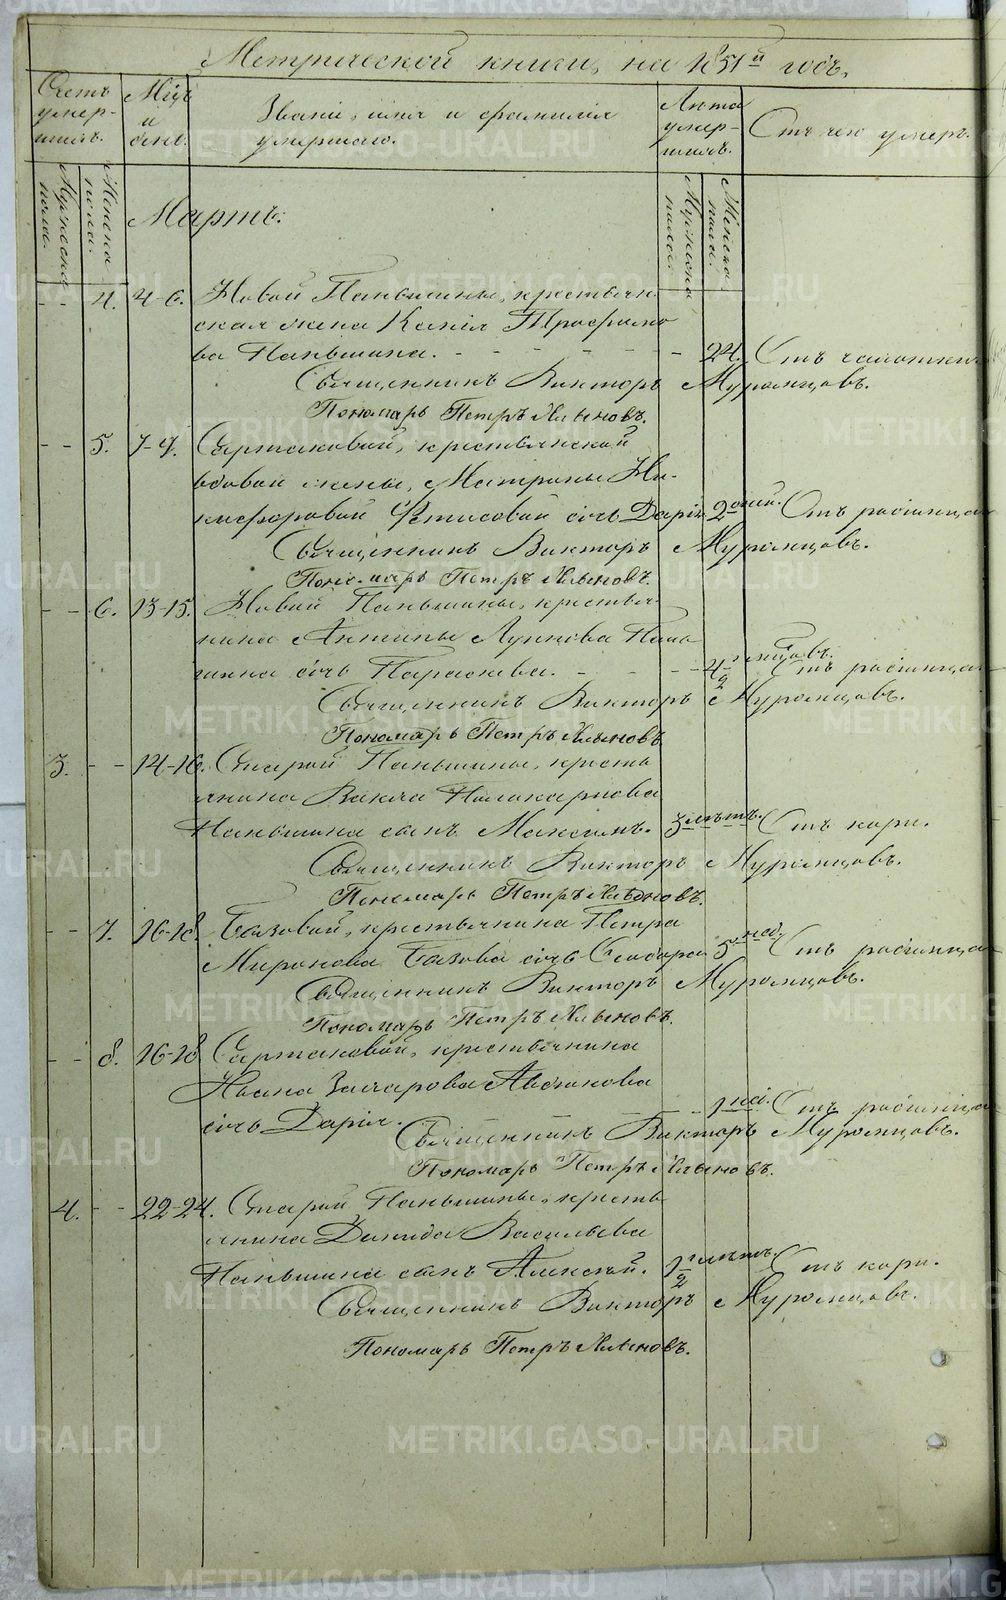 Метрической книги, на 1851й годъ.
Счетъ умер-шихъ.
Мѣц. и день.
Званiе, имя и фамилiя умершаго.
Лѣта умер-шихъ.
Отъ чего умеръ.
Мужеска пола.
Женска пола.
Мартъ.
Мужеска пола.
Женска пола.
4. 4-6. Новой Паньшины, крестьян-
ская жена Трофимо-
ва Паньшина. 24. Отъ чахотки.
Священникъ Викторъ Муромцовъ.
Пономарь Петръ
5. 7-9. Сартаковой, крестьянской
вдовой жены, Матроны Ни-
кифоровой Фетисовой дочь Дарiя 2 дней. Отъ
Священникъ Викторъ Муромцовъ.
Пономарь Петръ
6. 13-15. Новой Паньшины, крестья-
нина Антипы Лупкова Пань-
шина дочь Парасковья. 4 1/2 мѣсяцовъ. Отъ
Священникъ Викторъ Муромцовъ.
Пономарь Петръ
3. 14-16. Старой Паньшины, кресть-
янина Вакха Поликарпова
Паньшина сынъ Максимъ. 3 лѣтъ. Отъ кори.
Священникъ Викторъ Муромцовъ.
Пономарь Петръ
7. 16-18. Базовой, крестьянина Петра
Миронова Базова дочь 5 нед. Отъ
Священникъ Викторъ Муромцовъ.
Пономарь Петръ
8. 16-18. Сартаковой, крестьянина
Ивана Захарова
дочь Дарiя. Отъ
Священникъ Викторъ Муромцовъ.
Пономарь Петръ
4. 22-24. Старой Паньшины, кресть-
янина Давида Васильева
Паньшина сынъ Алексѣй. Отъ кори.
Священникъ Викторъ Муромцовъ.
Пономарь Петръ
METRIKI.GASO-URAL.RU